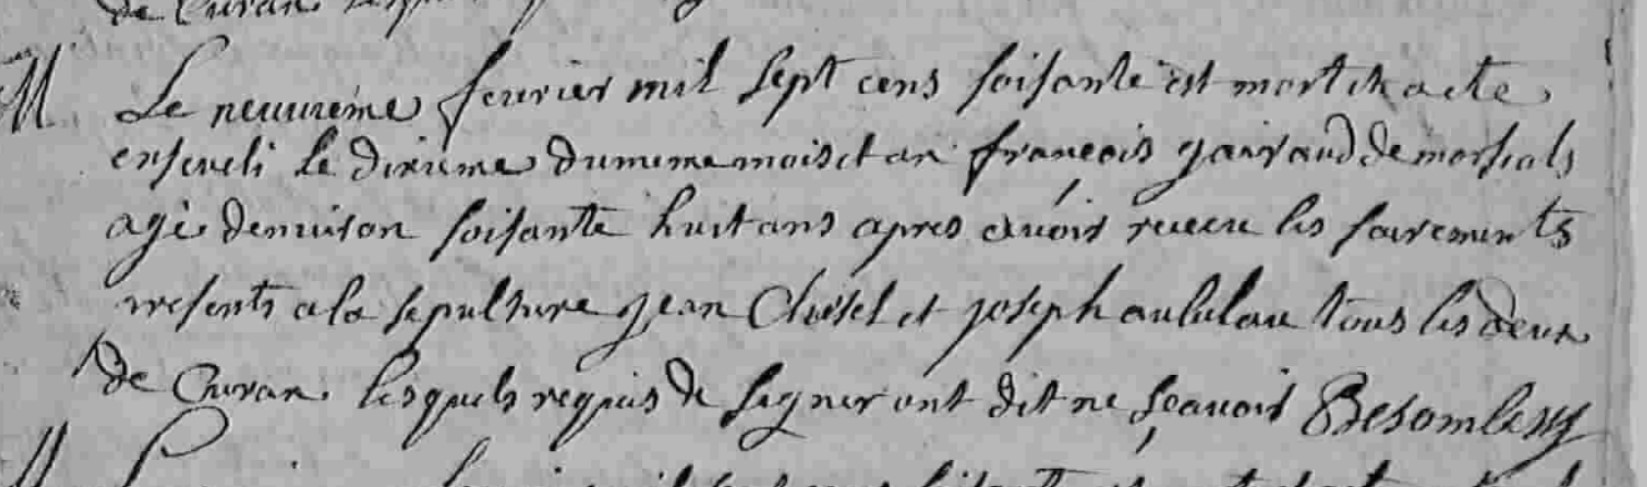 de Curan
M. Le neuvieme fevrier mil sept cens soisante est mort et a ete
enseveli le dixieme du meme mois et an françois gairaud de
agé denviron soisante huit ans apres avoir receu les sacrements
presents a la sepulture jean Choisel et joseph tous les deux
de Curan lesquels requis de signer ont dit ne sçavoir Besombes